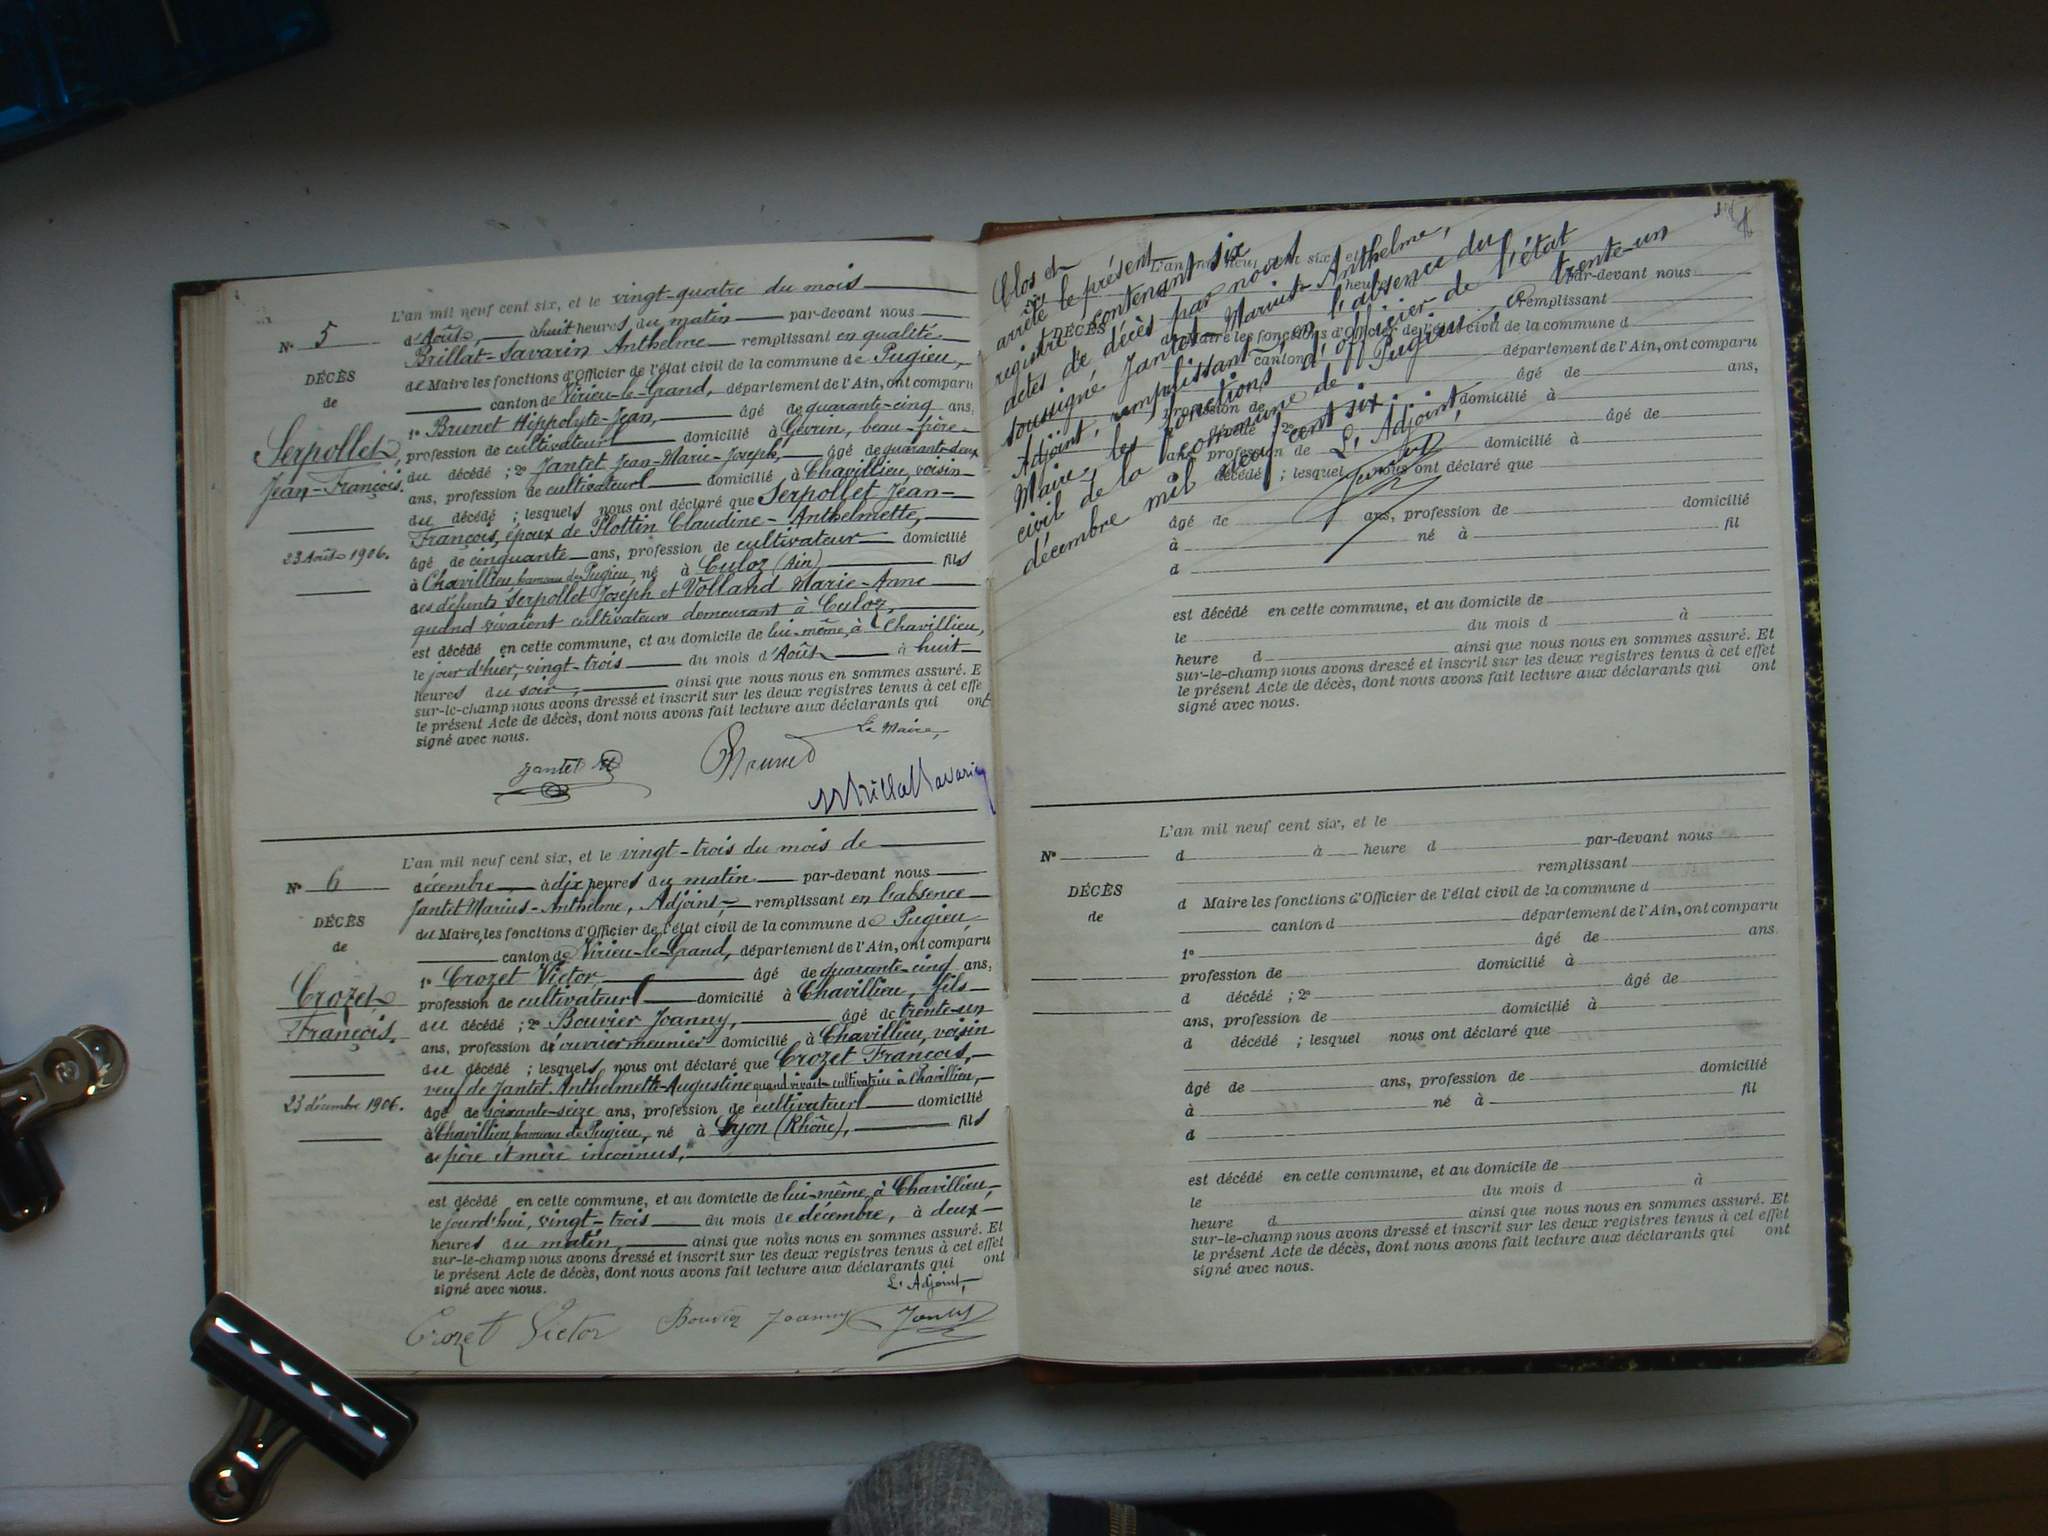 L'an mil neuf cent six, et le vingt-quatre du mois
N° 5
d'Août, à huit heures du matin par-devant nous
Brillat-Savarin Anthelme remplissant en qualité
DÉCÈS
de Maire les fonctions d'Officier de l'état civil de la commune de Pugieu,
de
canton de Virieu-le-Grand, département de l'Ain, ont comparu
1° Brunet Hippolyte-Jean, âgé de quarante-cinq ans,
Serpollet
profession de cultivateur domicilié à Gevrin, beau-père
Jean-François.
du décédé ; 2° Jantet Jean-Marie-Joseph, âgé de quarante-deux
ans, profession de cultivateur domicilié à Chavillieu, voisin
du décédé ; lesquels nous ont déclaré que Serpollet Jean-
François, époux de Plottin Claudine-Anthelmette,
23 Août 1906.
âgé de cinquante ans, profession de cultivateur domicilié
à Chavillieu hameau de Pugieu, né à Culoz (Ain) fils
des défunts Serpollet Joseph et Volland Marie-Anne
quand vivaient cultivateurs demeurant à Culoz,
est décédé en cette commune, et au domicile de lui-même, à Chavillieu,
le jour d'hier, vingt-trois du mois d'Août à huit
heures du soir, ainsi que nous nous en sommes assuré. E
sur-le-champ nous avons dressé et inscrit sur les deux registres tenus à cet effe
le présent Acte de décès, dont nous avons fait lecture aux déclarants qui ont
signé avec nous.
Le Maire,
Jantet
Brunet
Brillat Savarin
L'an mil neuf cent six, et le vingt-trois du mois de
N° 6
décembre à dix heures du matin par-devant nous
Jantet Marius-Anthelme, Adjoint, remplissant en l'absence
DÉCÈS
du Maire, les fonctions d'Officier de l'état civil de la commune de Pugieu,
de
canton de Virieu-le-Grand, département de l'Ain, ont comparu
1° Crozet Victor, âgé de quarante-cinq ans,
Crozet
profession de cultivateur domicilié à Chavillieu, fils
François.
du décédé ; 2° Bouvier Joanny, âgé de trente-un
ans, profession d'ouvrier meunier domicilié à Chavillieu, voisin
du décédé ; lesquels nous ont déclaré que Crozet François,
veuf de Jantet Anthelmette-Augustine quand vivait cultivatrice à Chavillieu,
23 décembre 1906.
âgé de soixante-seize ans, profession de cultivateur domicilié
à Chavillieu, hameau de Pugieu, né à Lyon (Rhône), fils
de père et mère inconnus,
est décédé en cette commune, et au domicile de lui-même, à Chavillieu,
le jourd'hui, vingt-trois du mois de décembre, à deux
heures du matin, ainsi que nous nous en sommes assuré. Et
sur-le-champ nous avons dressé et inscrit sur les deux registres tenus à cet effet
le présent Acte de décès, dont nous avons fait lecture aux déclarants qui ont
signé avec nous.
L'Adjoint,
Crozet Victor
Bouvier Joanny
Jantet
Clos et
arrêté le présent
registre contenant six
actes de décès par nous
soussigné Jantet Marius-Anthelme,
Adjoint, remplissant, en l'absence du
Maire, les fonctions d'Officier de l'état
civil de la commune de Pugieu, ce trente-un
décembre mil neuf cent six.
L'Adjoint,
Jantet
L'an mil neuf cent six, et
heure
par-devant nous
remplissant
DÉCÈS
d Maire les fonctions d'Officier de l'état civil de la commune d
canton département de l'Ain, ont comparu
âgé de ans,
profession de domicilié à
décédé ; 2° âgé de
ans, profession de domicilié à
décédé ; lesquel nous ont déclaré que
âgé de ans, profession de domicilié
à né à fil
d
est décédé en cette commune, et au domicile de
le du mois d à
heure d ainsi que nous nous en sommes assuré. Et
sur-le-champ nous avons dressé et inscrit sur les deux registres tenus à cet effet
le présent Acte de décès, dont nous avons fait lecture aux déclarants qui ont
signé avec nous.
L'an mil neuf cent six, et le
N°
d à heure d par-devant nous
remplissant
DÉCÈS
d Maire les fonctions d'Officier de l'état civil de la commune d
de
canton d département de l'Ain, ont comparu
1° âgé de ans.
profession de domicilié à
d décédé ; 2° âgé de
ans, profession de domicilié à
d décédé ; lesquel nous ont déclaré que
âgé de ans, profession de domicilié
à né à fil
d
est décédé en cette commune, et au domicile de
le du mois d à
heure d ainsi que nous nous en sommes assuré. Et
sur-le-champ nous avons dressé et inscrit sur les deux registres tenus à cet effet
le présent Acte de décès, dont nous avons fait lecture aux déclarants qui ont
signé avec nous.